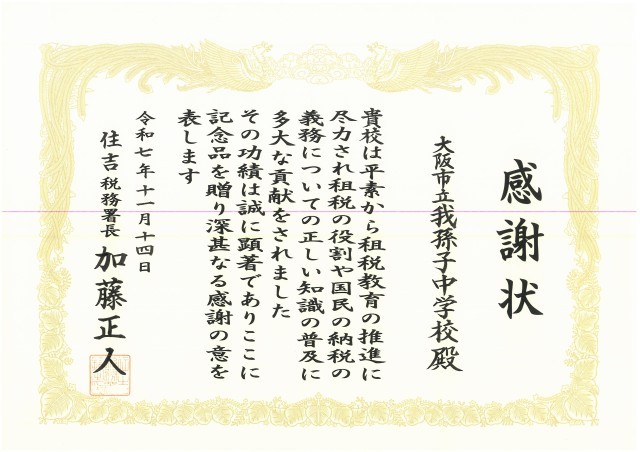 感謝状
大阪市立我孫子中学校殿
貴校は平素から租税教育の推進に
尽力され租税の役割や国民の納税の
義務についての正しい知識の普及に
多大な貢献をされました
その功績は誠に顕著でありここに
記念品を贈り深甚なる感謝の意を
表します
令和七年十一月十四日
住吉税務署長 加藤正人